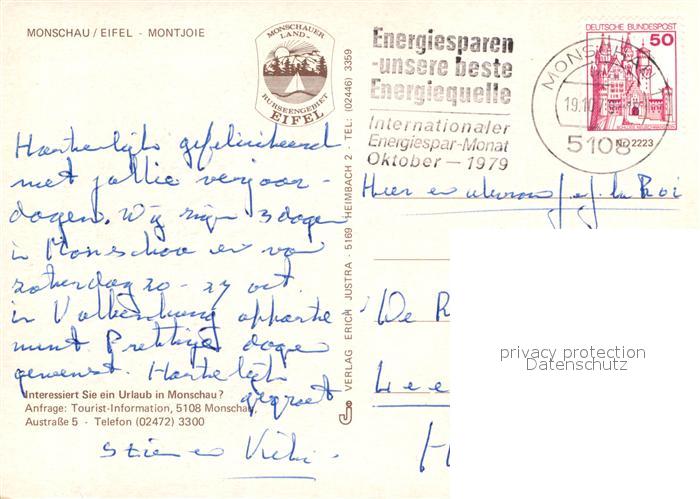 MONSCHAU / EIFEL - MONTJOIE
MONSCHAUER
LAND-
RURSEENGEBIET
EIFEL
Energiesparen
-unsere beste
Energiequelle
Internationaler
Energiespar-Monat
Oktober — 1979
MONSCHAU
19.10.
5108
DEUTSCHE BUNDESPOST
50
Nr. 2223
Hartelijk gefeliciteerd
met jullie verjaar-
dagen. Wij zijn 3 dagen
in Monschou en van
zaterdag 20 - 27 oct.
in Valkenburg apparte
ment Prettige dagen
gewenst. Hartelijk
gegroet
Stien en
Interessiert Sie ein Urlaub in Monschau?
Anfrage: Tourist-Information, 5108 Monschau,
Austraße 5 - Telefon (02472) 3300
VERLAG ERICH JUSTRA - 5169 HEIMBACH 2 - TEL. (02446) 3359
Heer en mevrouw
De
Lee
H
privacy protection
Datenschutz